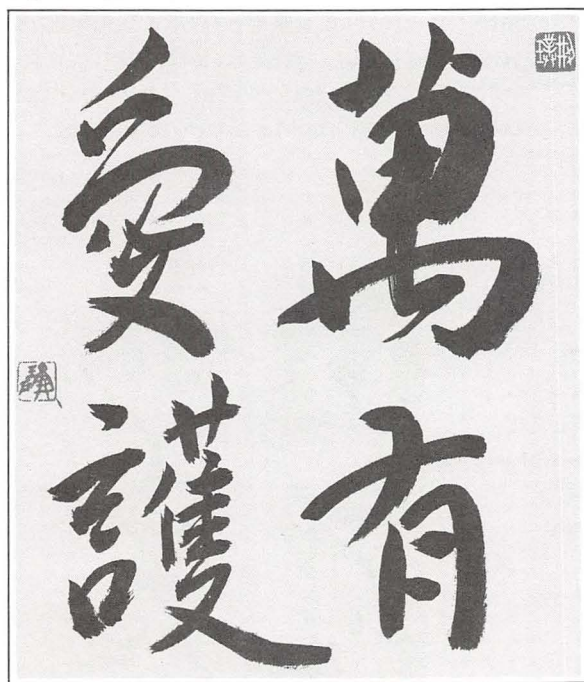 萬有
愛護